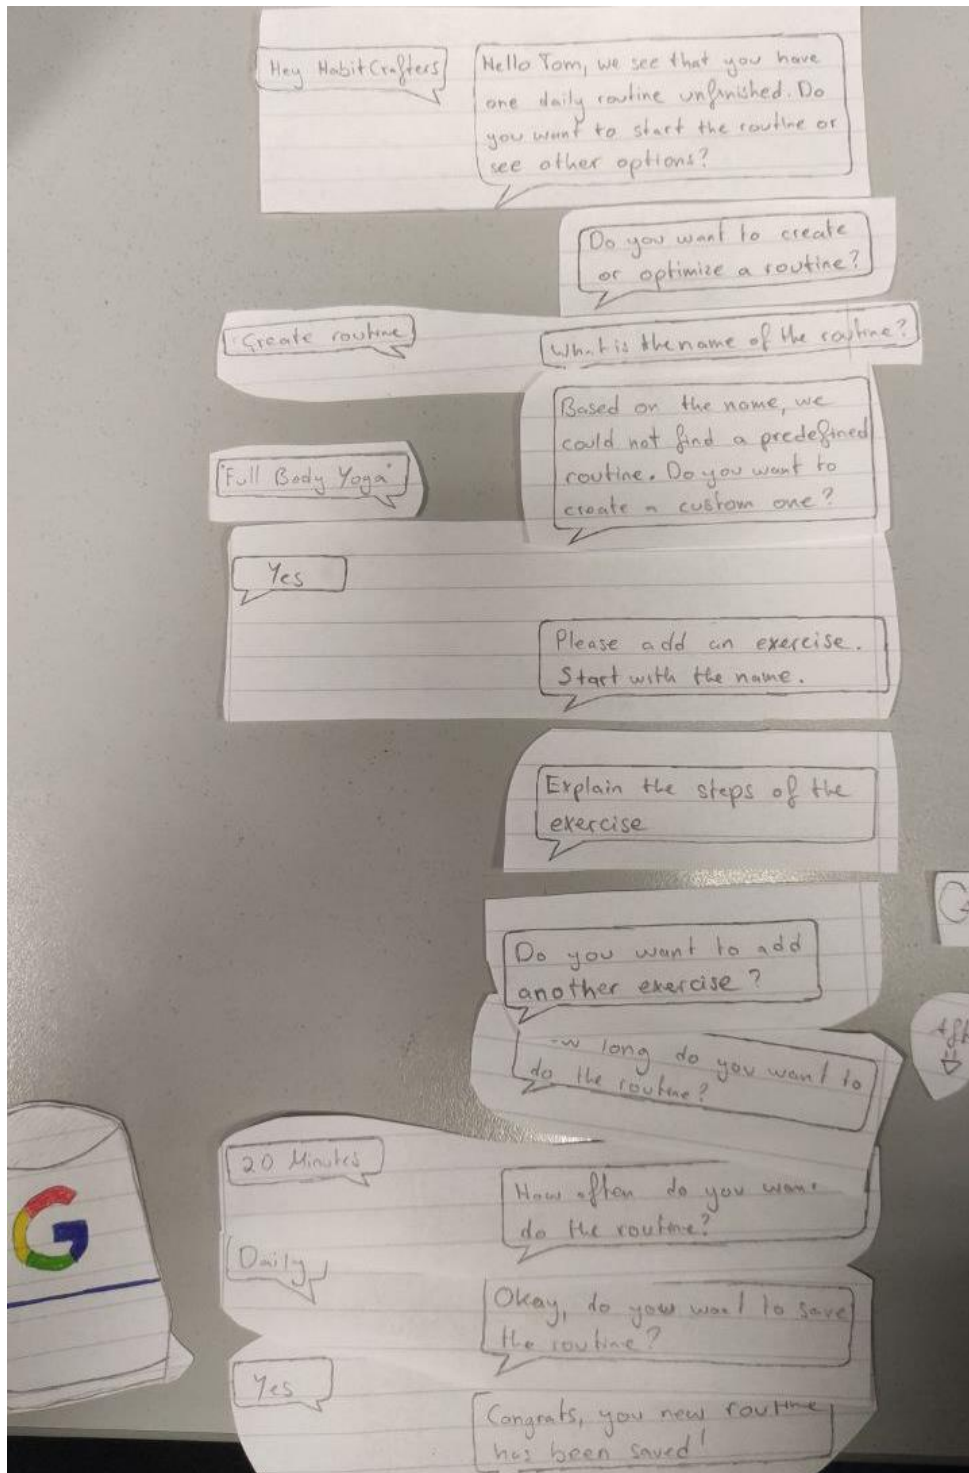 Hey HabitCrafters
Hello Tom, we see that you have
one daily routine unfinished. Do
you want to start the routine or
see other options?
Do you want to create
or optimize a routine?
Create routine
What is the name of the routine?
"Full Body Yoga"
Based on the name, we
could not find a predefined
routine. Do you want to
create a custom one?
Yes
Please add an exercise.
Start with the name.
Explain the steps of the
exercise
Do you want to add
another exercise?
long do you want to
do the routine?
20 Minutes
How often do you want
do the routine?
Daily
Okay, do you want to save
the routine?
Yes
Congrats, you new routine
has been saved!
G